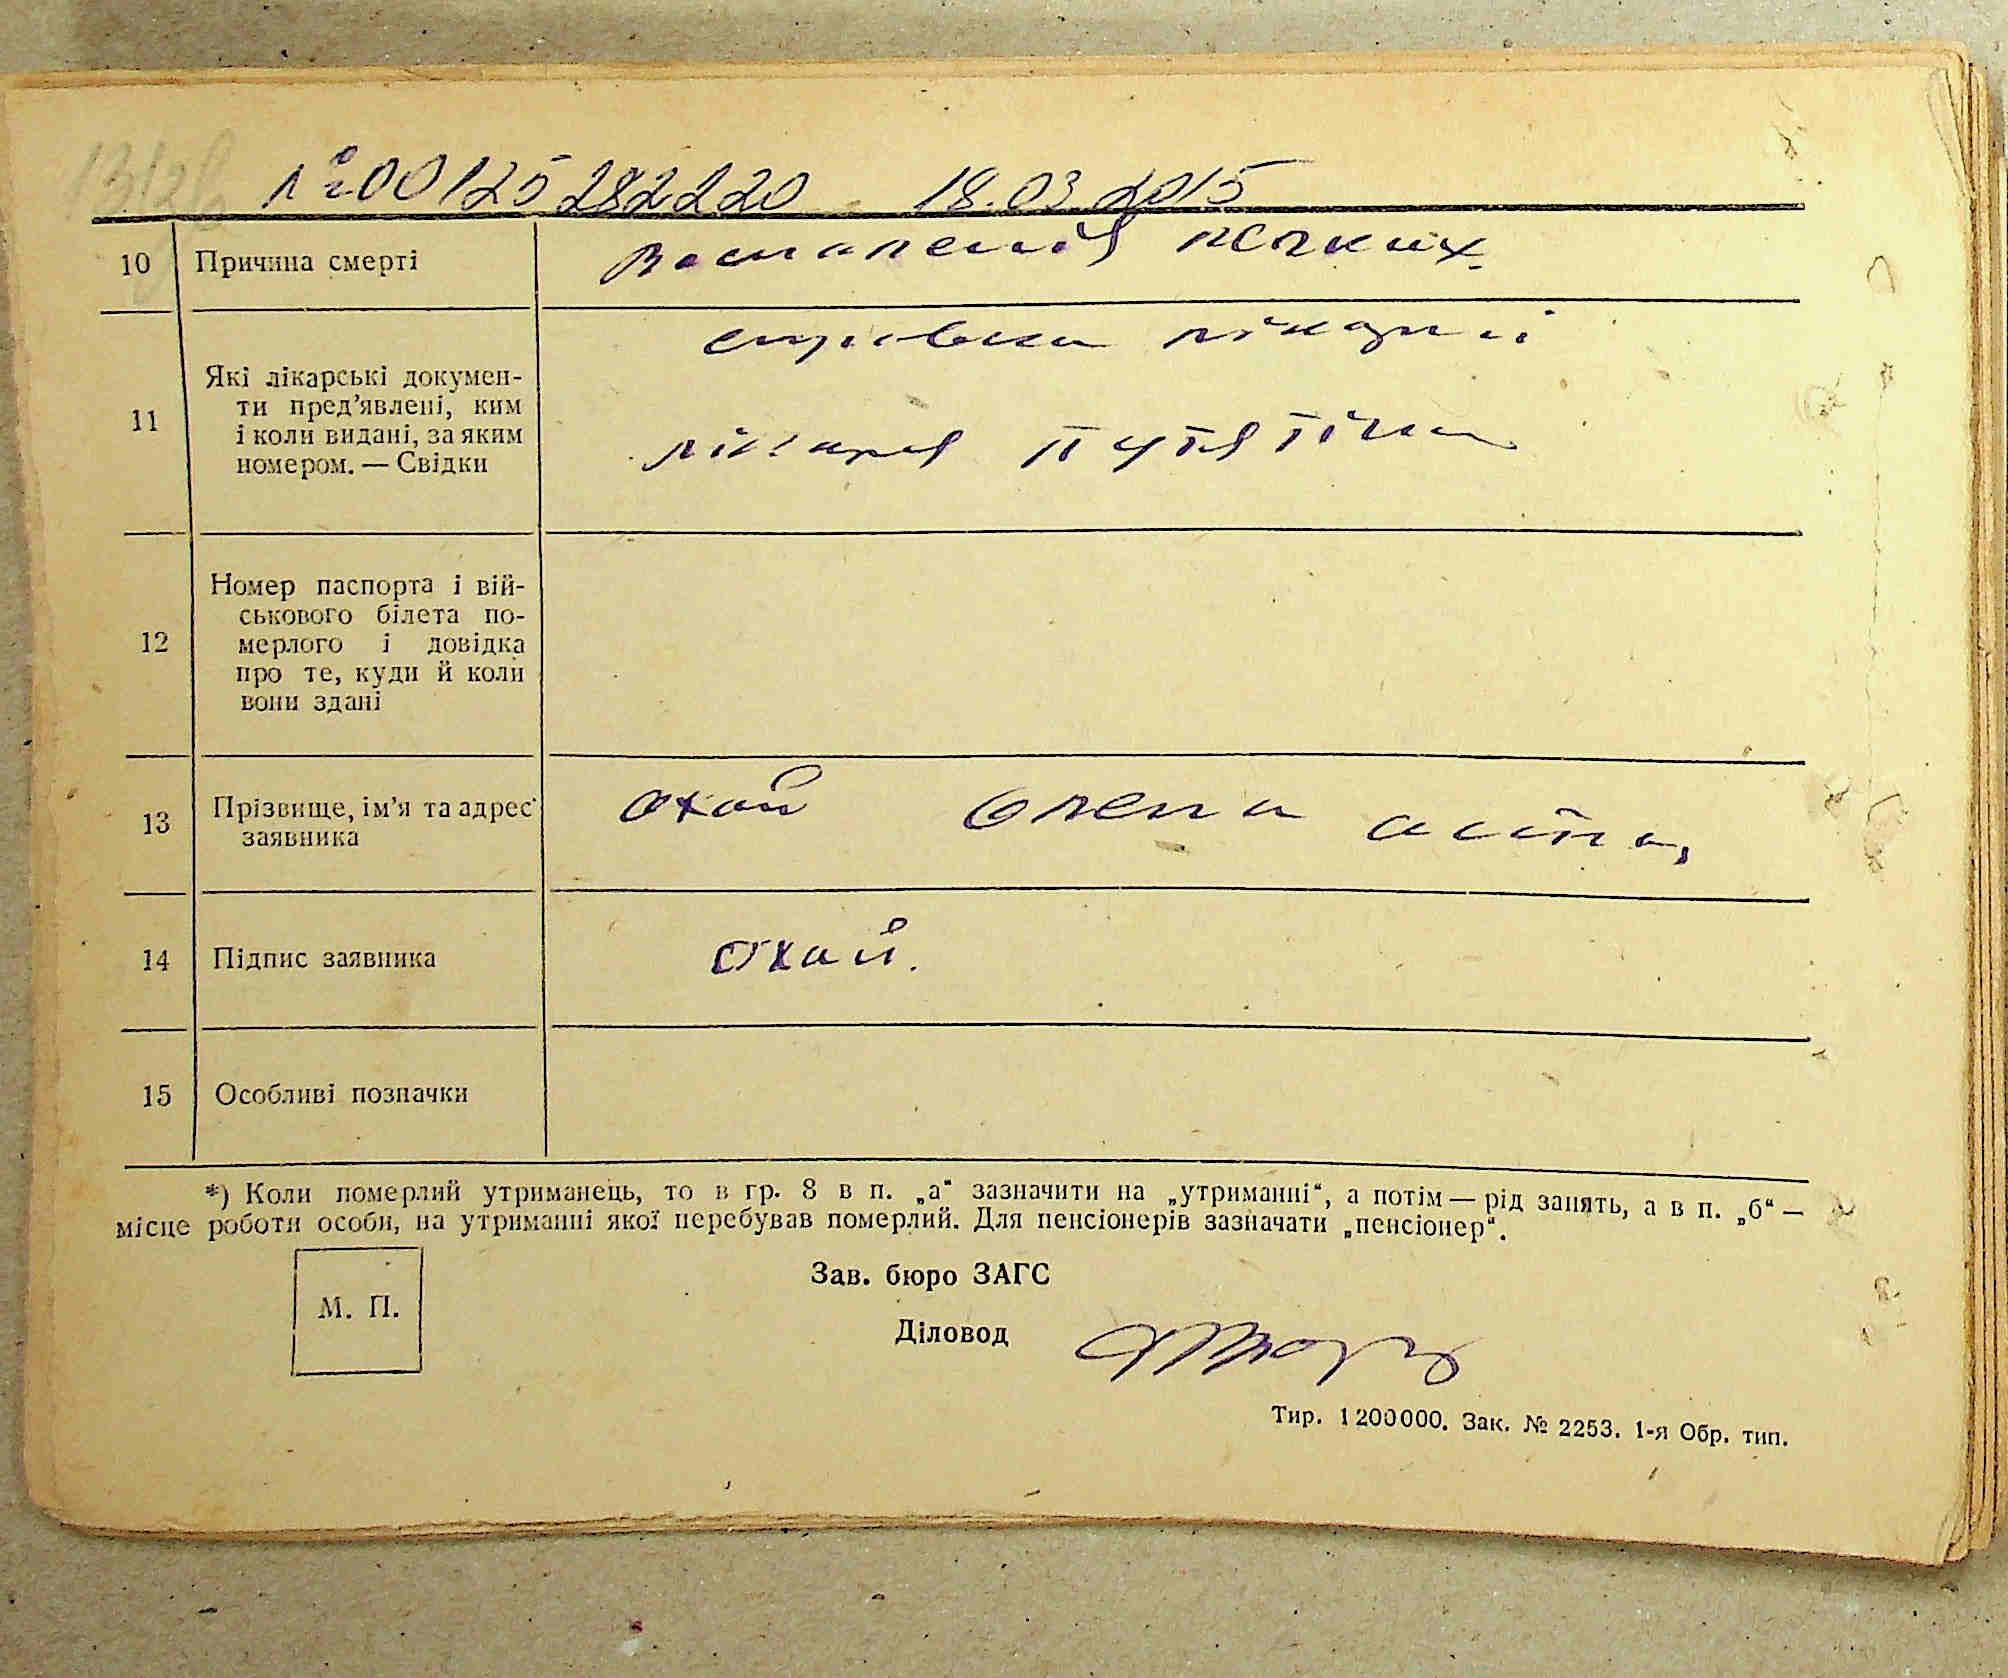 №00125282220 18.03.2015
10 Причина смерті Воспаленія легких.
11 Які лікарські докумен-
ти пред'явлені, ким
і коли видані, за яким
номером. — Свідки
справка лікарні
лікаря Путятіна
12 Номер паспорта і вій-
ськового білета по-
мерлого і довідка
про те, куди й коли
вони здані
13 Прізвище, ім'я та адрес
заявника
Охай Олена
14 Підпис заявника Охай.
15 Особливі позначки
*) Коли померлий утриманець, то в гр. 8 в п. „а“ зазначити на „утриманні“, а потім — рід занять, а в п. „б“ —
місце роботи особи, на утриманні якої перебував померлий. Для пенсіонерів зазначати „пенсіонер“.
М. П.
Зав. бюро ЗАГС
Діловод
Тир. 1200000. Зак. № 2253. 1-я Обр. тип.